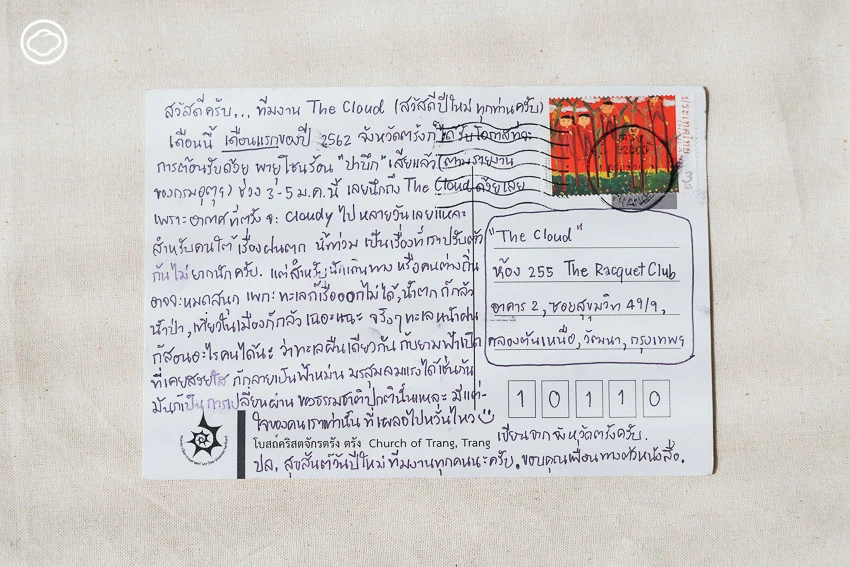 สวัสดีครับ... ทีมงาน The Cloud (สวัสดีปีใหม่ ทุกท่านครับ)
เดือนนี้ เดือนแรกของปี 2562 จังหวัดตรังก็ได้รับโอกาสที่จะ
การต้อนรับด้วย พายุโซนร้อน "ปาบึก" เสียแล้ว (ตามรายงาน
ของกรมอุตุฯ) ช่วง 3-5 ม.ค. นี้ เลยนึกถึง The Cloud ด้วยเลย
เพราะอากาศที่ตรัง จะ Cloudy ไป หลายวันเลยแหละ
สำหรับคนใต้ เรื่องฝนตก น้ำท่วม เป็นเรื่องที่เราปรับตัว
กันไม่ ยากนักครับ. แต่สำหรับนักเดินทาง หรือคนต่างถิ่น
อาจจะหมดสนุก เพราะทะเลก็เรือออกไม่ได้, น้ำตก ก็กลัว
น้ำป่า, เที่ยวในเมืองก็กลัว เฉอะแฉะ จริงๆ ทะเลหน้าฝน
ก็สอนอะไรคนได้นะ ว่าทะเลผืนเดียวกัน กับยามฟ้าเปิด
ที่เคยสวยใส ก็กลายเป็นฟ้าหม่น มรสุมลมแรงได้เช่นกัน
มันก็เป็นการเปลี่ยนผ่าน ของธรรมชาติปกตินั้นแหละ มีแต่
ใจของคนเราเท่านั้น ที่เผลอไปหวั่นไหว
โบสถ์คริสตจักรตรัง ตรัง Church of Trang, Trang
ปล. สุขสันต์วันปีใหม่ ทีมงานทุกคนนะครับ. ขอบคุณเพื่อนทางตัวหนังสือ.
ประเทศไทย
3
92000
"The Cloud"
ห้อง 255 The Racquet Club
อาคาร 2, ซอยสุขุมวิท 49/9,
คลองตันเหนือ, วัฒนา, กรุงเทพฯ
10110
เขียนจาก จังหวัดตรังครับ.